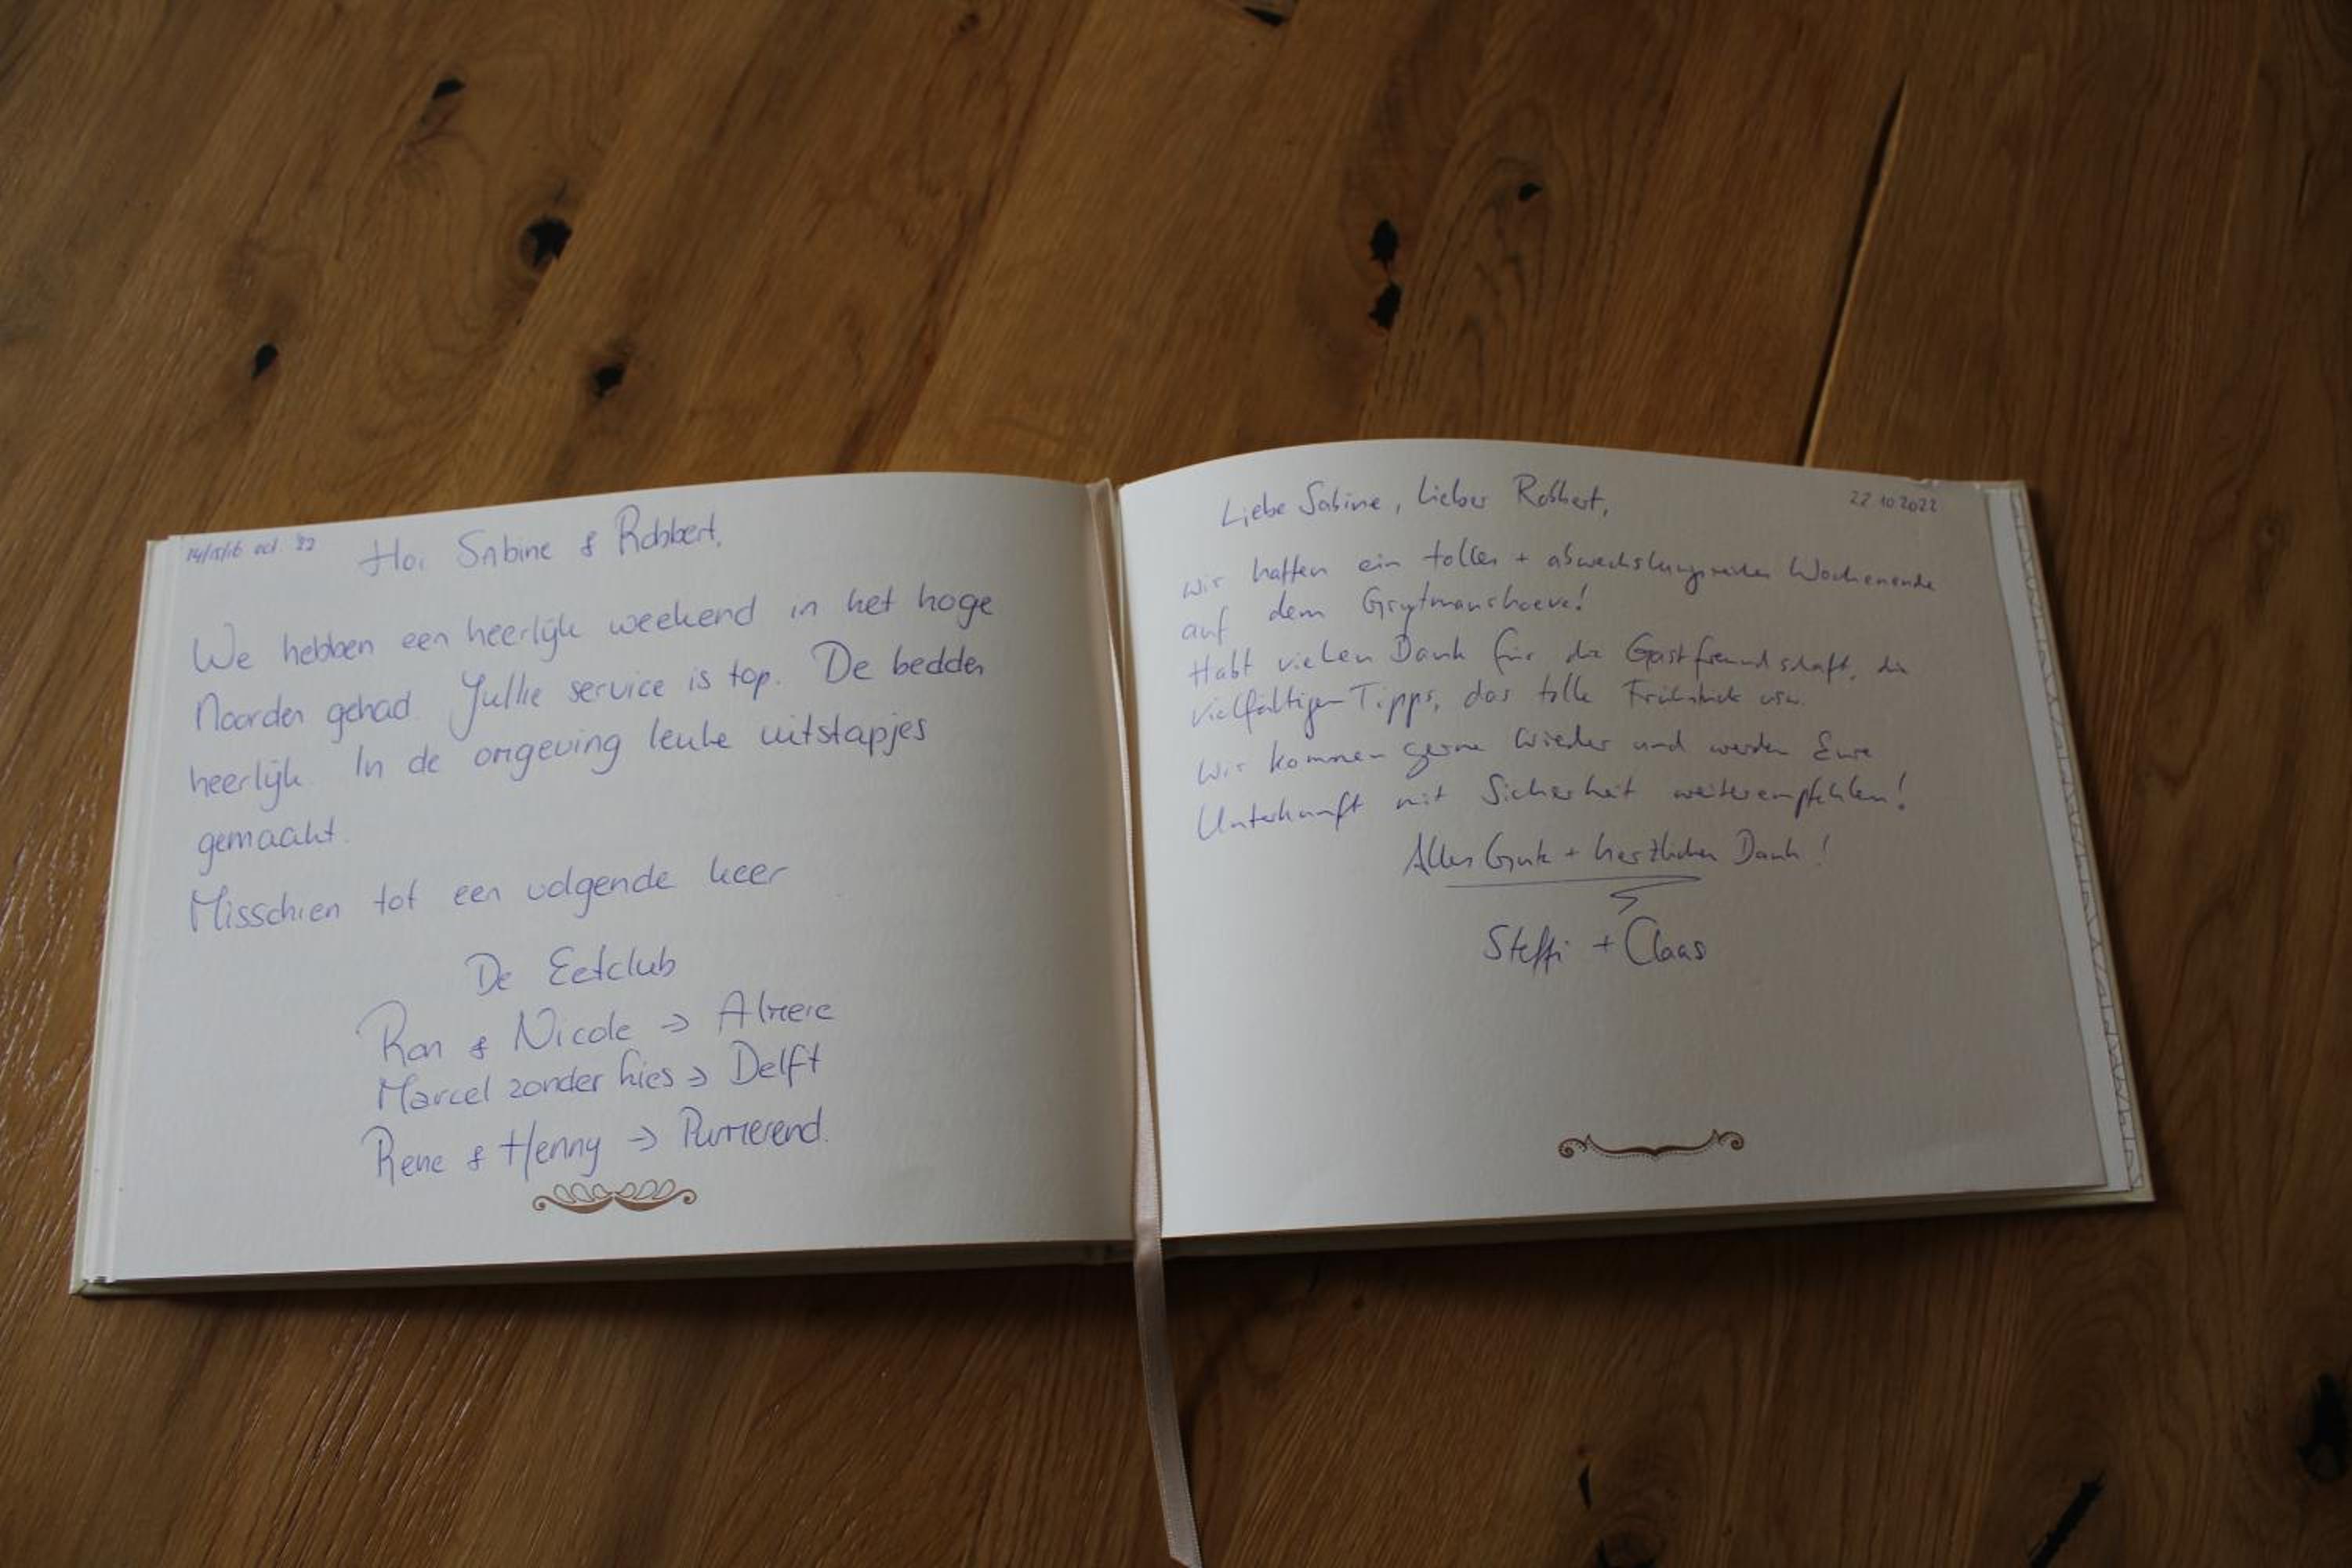 14/15/16 oct. '22
Hoi Sabine & Robbert,
We hebben een heerlijk weekend in het hoge
Noorden gehad. Jullie service is top. De bedden
heerlijk. In de omgeving leuke uitstapjes
gemaakt.
Misschien tot een volgende keer
De Eetclub
Ron & Nicole → Almere
Marcel zonder kies → Delft
Rene & Henny → Purmerend.
22.10.2022
Liebe Sabine, Lieber Robbert,
wir hatten ein tolles + abwechslungsreiches Wochenende
auf dem Gruytmanshoeve!
Habt vielen Dank für die Gastfreundschaft, die
vielfältigen Tipps, das tolle Frühstück usw.
Wir kommen gerne wieder und werden Eure
Unterkunft mit Sicherheit weiterempfehlen!
Alles Gute + herzlichen Dank!
Steffi + Claas